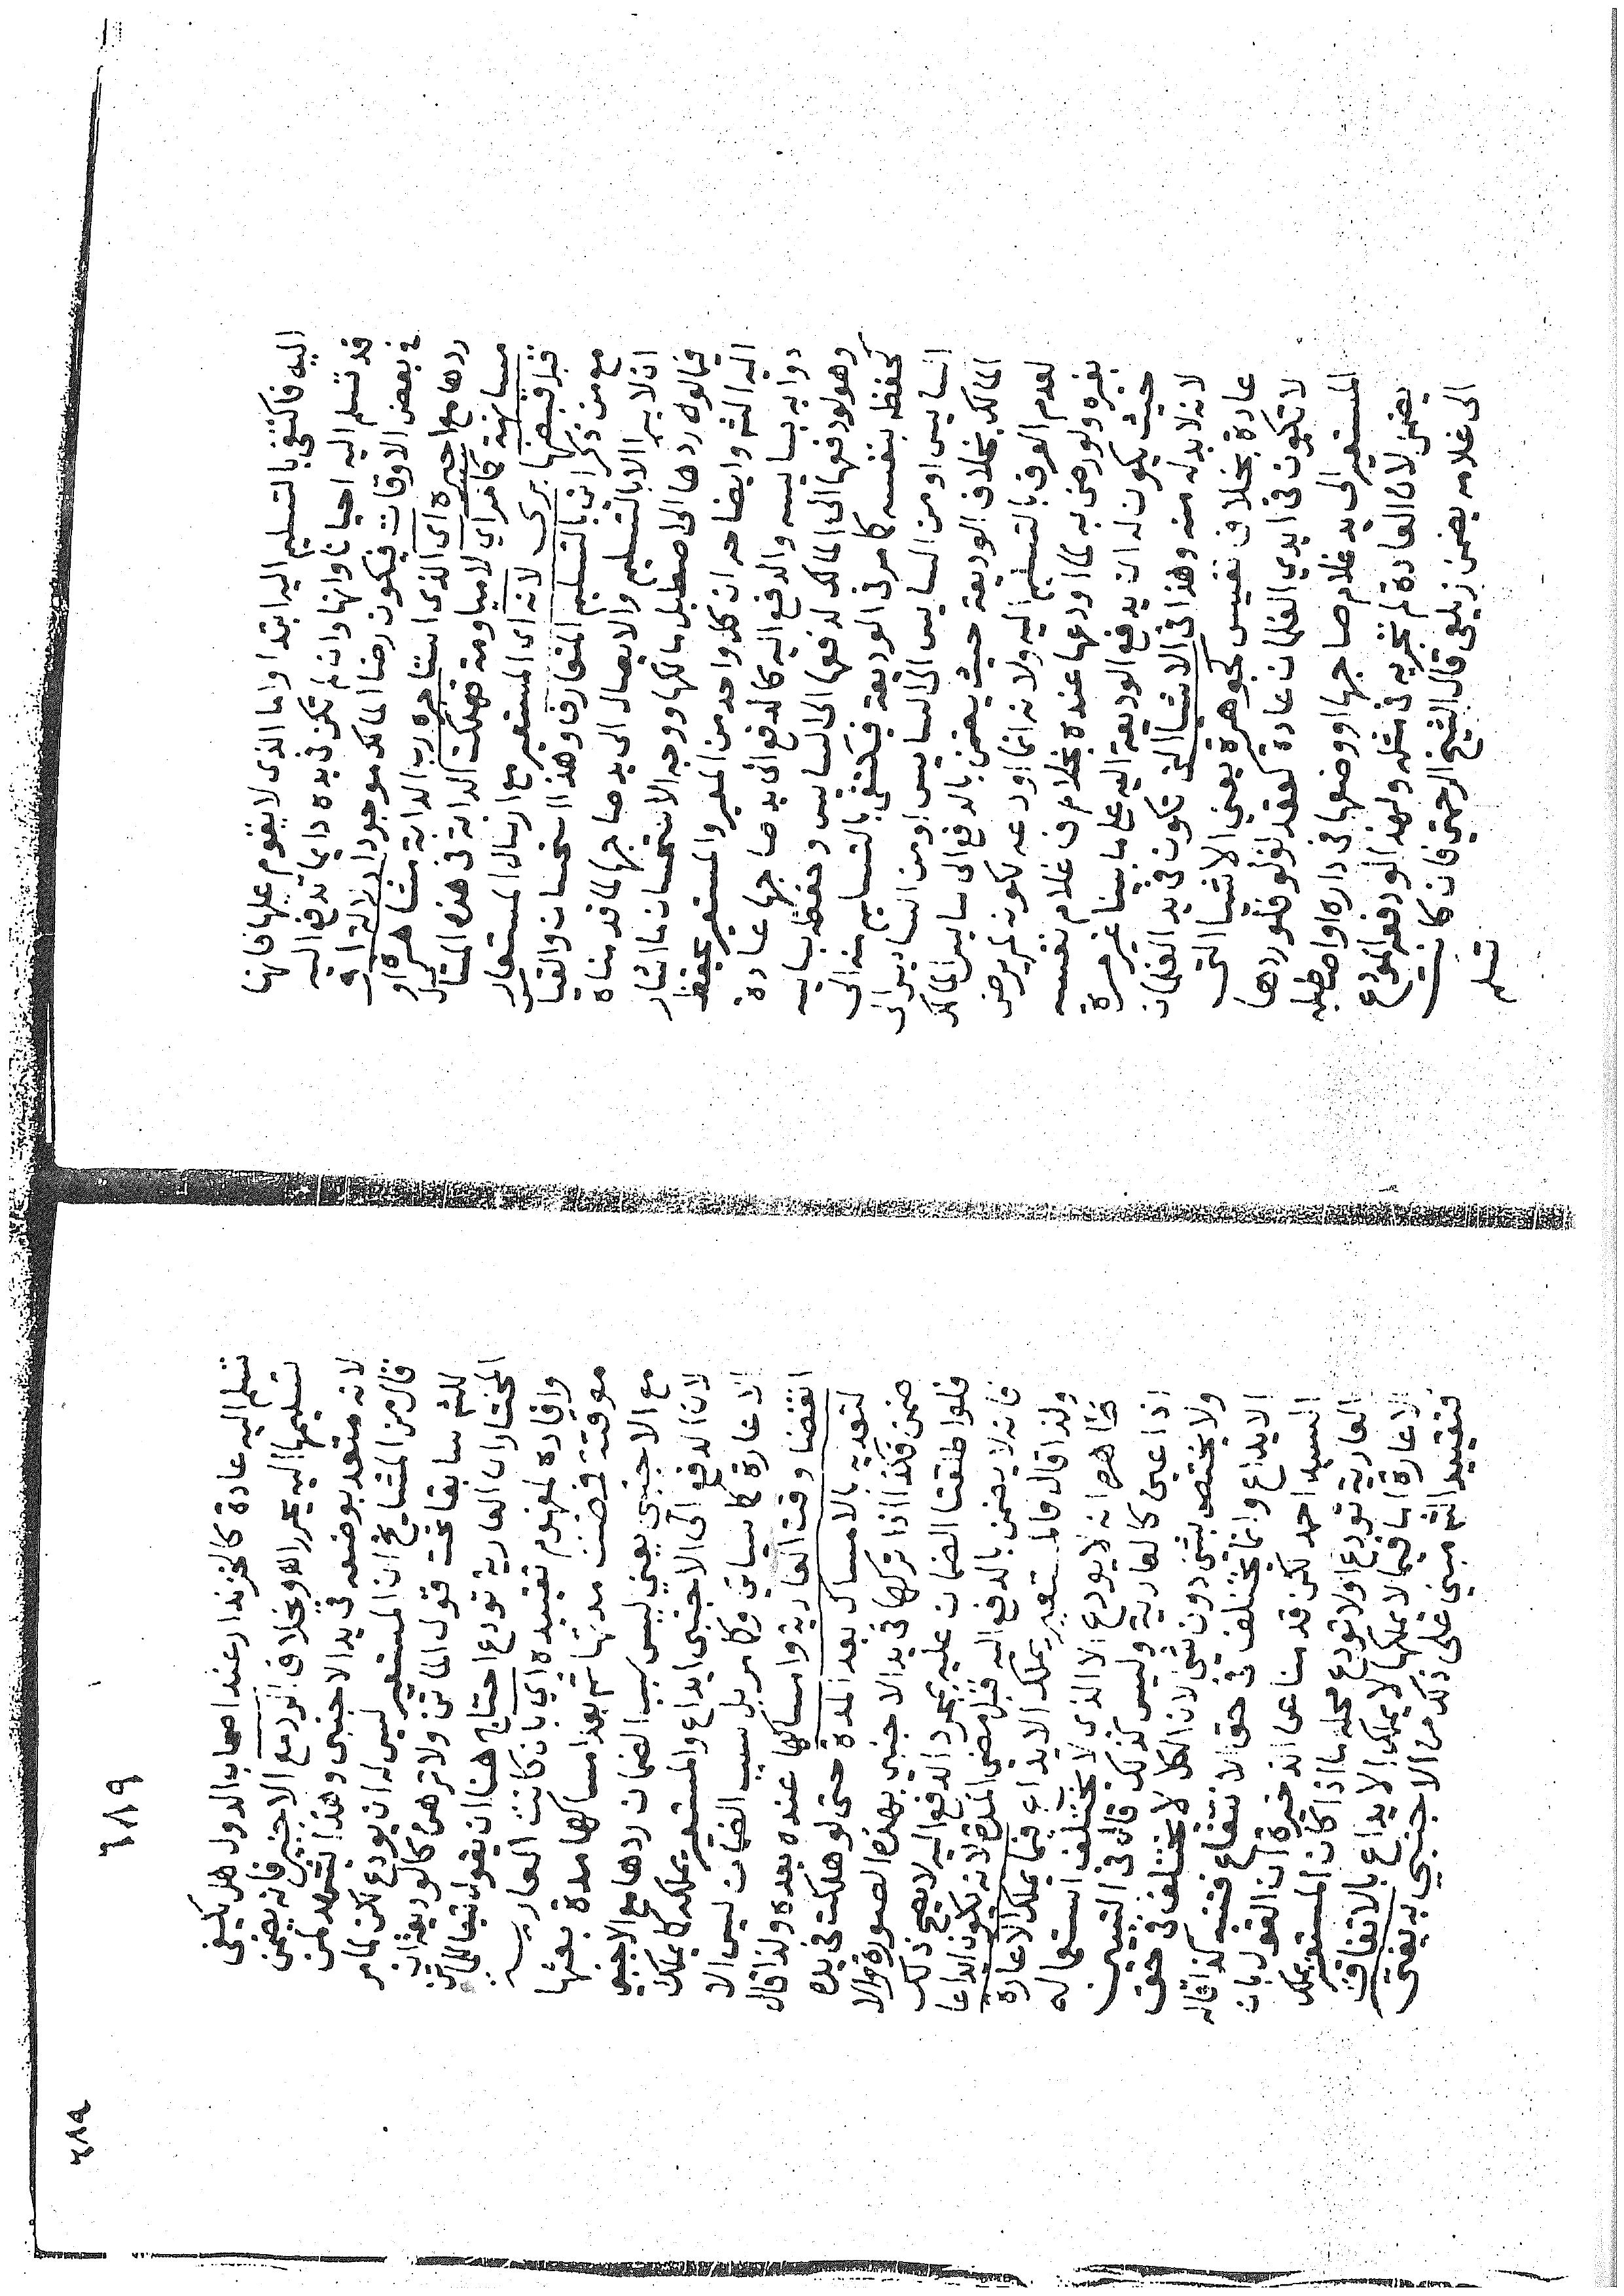 اليه فاكتفى بالتسليم اليه ابتدا واما الذى لا يقوم عليها فانها
قد تسلم اليه احيانا وانها وان لم تكن فى يده دايما تدفع اليه
فى بعض الاوقات فيكون رضا المالك موجودا دلالة او
ردها مع اجيره اى الذى استاجره رب الدابة مشاهرة او
مسانهة كما مر اي لا مياومة فهلكت الدابة فى هذه المسايل
قبل قبضها برى لانه اى المستعير مع ارسال المستعار
مع من ذكر اتى بالتسليم المتعارف وهذا استحسان والقياس
ان لا يبرا الا بالتسليم والايصال الى يد صاحبها لما قدمناه
فيما لو ردها الى اصطبل مالكها ووجه الاستحسان ما اشار
اليه الش وايضا حه ان كل واحد من المعير والمستعير يحفظ
دوابه بسايسه والدفع اليه كالدفع الى يد صاحبها عادة
وهو لو دفعها الى المالك لدفعها الى السايس وحفظه بسايسه
كحفظه بنفسه كما مر فى الوديعة فيكتفى بالتسليم منه الى
السايس او من السايس الى السايس او من السايس الى
المالك بخلاف الوديعة حيث يضمن بالدفع الى سايس المالك
لعدم العرف بالتسليم اليه ولانه انما اودعه لكونه لم يرض
بغيره ولو رضى به لما اودعها عنده بخلاف غلام نفسه
حيث يكون له ان يدفع الوديعة اليه على ما بينا غير مرة
لانه لا بد له منه وهذا فى الاشيا التى تكون فى يد الغلمان
عادة بخلاف نفيس كجوهرة يعني الاشيا التى
لا تكون فى ايدي الغلمان عادة كعقد لولو فلو ردها
المستعير الى يد غلام صاحبها او وضعها فى داره او اصطبله
يضمن لان العادة لم تجر به فى مثله ولهذا لو دفعه المودع
الى غلامه يضمن زيلعى قال الشيخ الرحمتي فان كانت
تسلم
٦٨٩
٦٨٩
تسلم اليه عادة كالخزندار عند اصحاب الدول هل يكفى
تسليمها اليه يحرر اهـ وبخلاف الرد مع الاجنبى فانه يضمن
لانه متعد بوضعه فى يد الاجنبى وهذا يشهد لمن
قال من المشايخ ان المستعير ليس له ان يودع لكن لما مر
للش سابقا تحت قول الماتن ولا ترهن كالوديعة ان
المختار ان العارية تودع احتاج هنا ان يقول تبعا للماتن
وافاده لمفهوم تقييده اي بان كانت العارية
موقتة فمضت مدتها ثم بعد امساكها مدة بعثها
مع الاجنبى يعني ليس سبب الضمان ردها مع الاجنبى
لان الدفع الى الاجنبى ايداع والمستعير يملكه كما يملك
الاعارة كما سياتى وكما مر بل سبب الضمان ليس الا
انقضا وقت العارية وامساكها عنده بعده ولذا قال
لتعديه بالامساك بعد المدة حتى لو هلكت فى يده
ضمن فكذا اذا تركها فى يد الاجنبى بهذه الصورة والا
فلو اطلقنا الضمان عليه بمجرد الدفع اليه لا يصح ذلك
فانه لا يضمن بالدفع اليه قبل مضى المدة لانه يكون ايداعا
ولذا قال فالمستعير يملك الايداع فيما يملك الاعارة
ظاهره انه لا يودع الا الذي لا يختلف استعماله
اذا عين كالعارية وليس كذلك قال فى التبيين
ولا يختص بشى دون شى لان الكل لا يختلف فى حق
الايداع وانما يختلف فى حق الانتفاع فتنبه كذا قاله
السيد احمد لكن قدمنا عن الذخيرة ان القول بان
العارية تودع اولا تودع محله ما اذا كان المستعير يملك
الاعارة اما فيما لا يملكها لا يملك الايداع بالاتفاق
فتقييد الش مبنى على ذلك من الاجنبي به يفتى